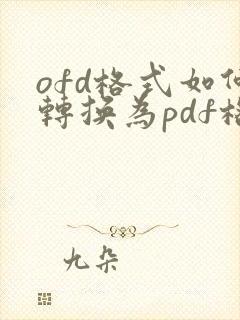 ofd格式如何
轉換為pdf格
九朵